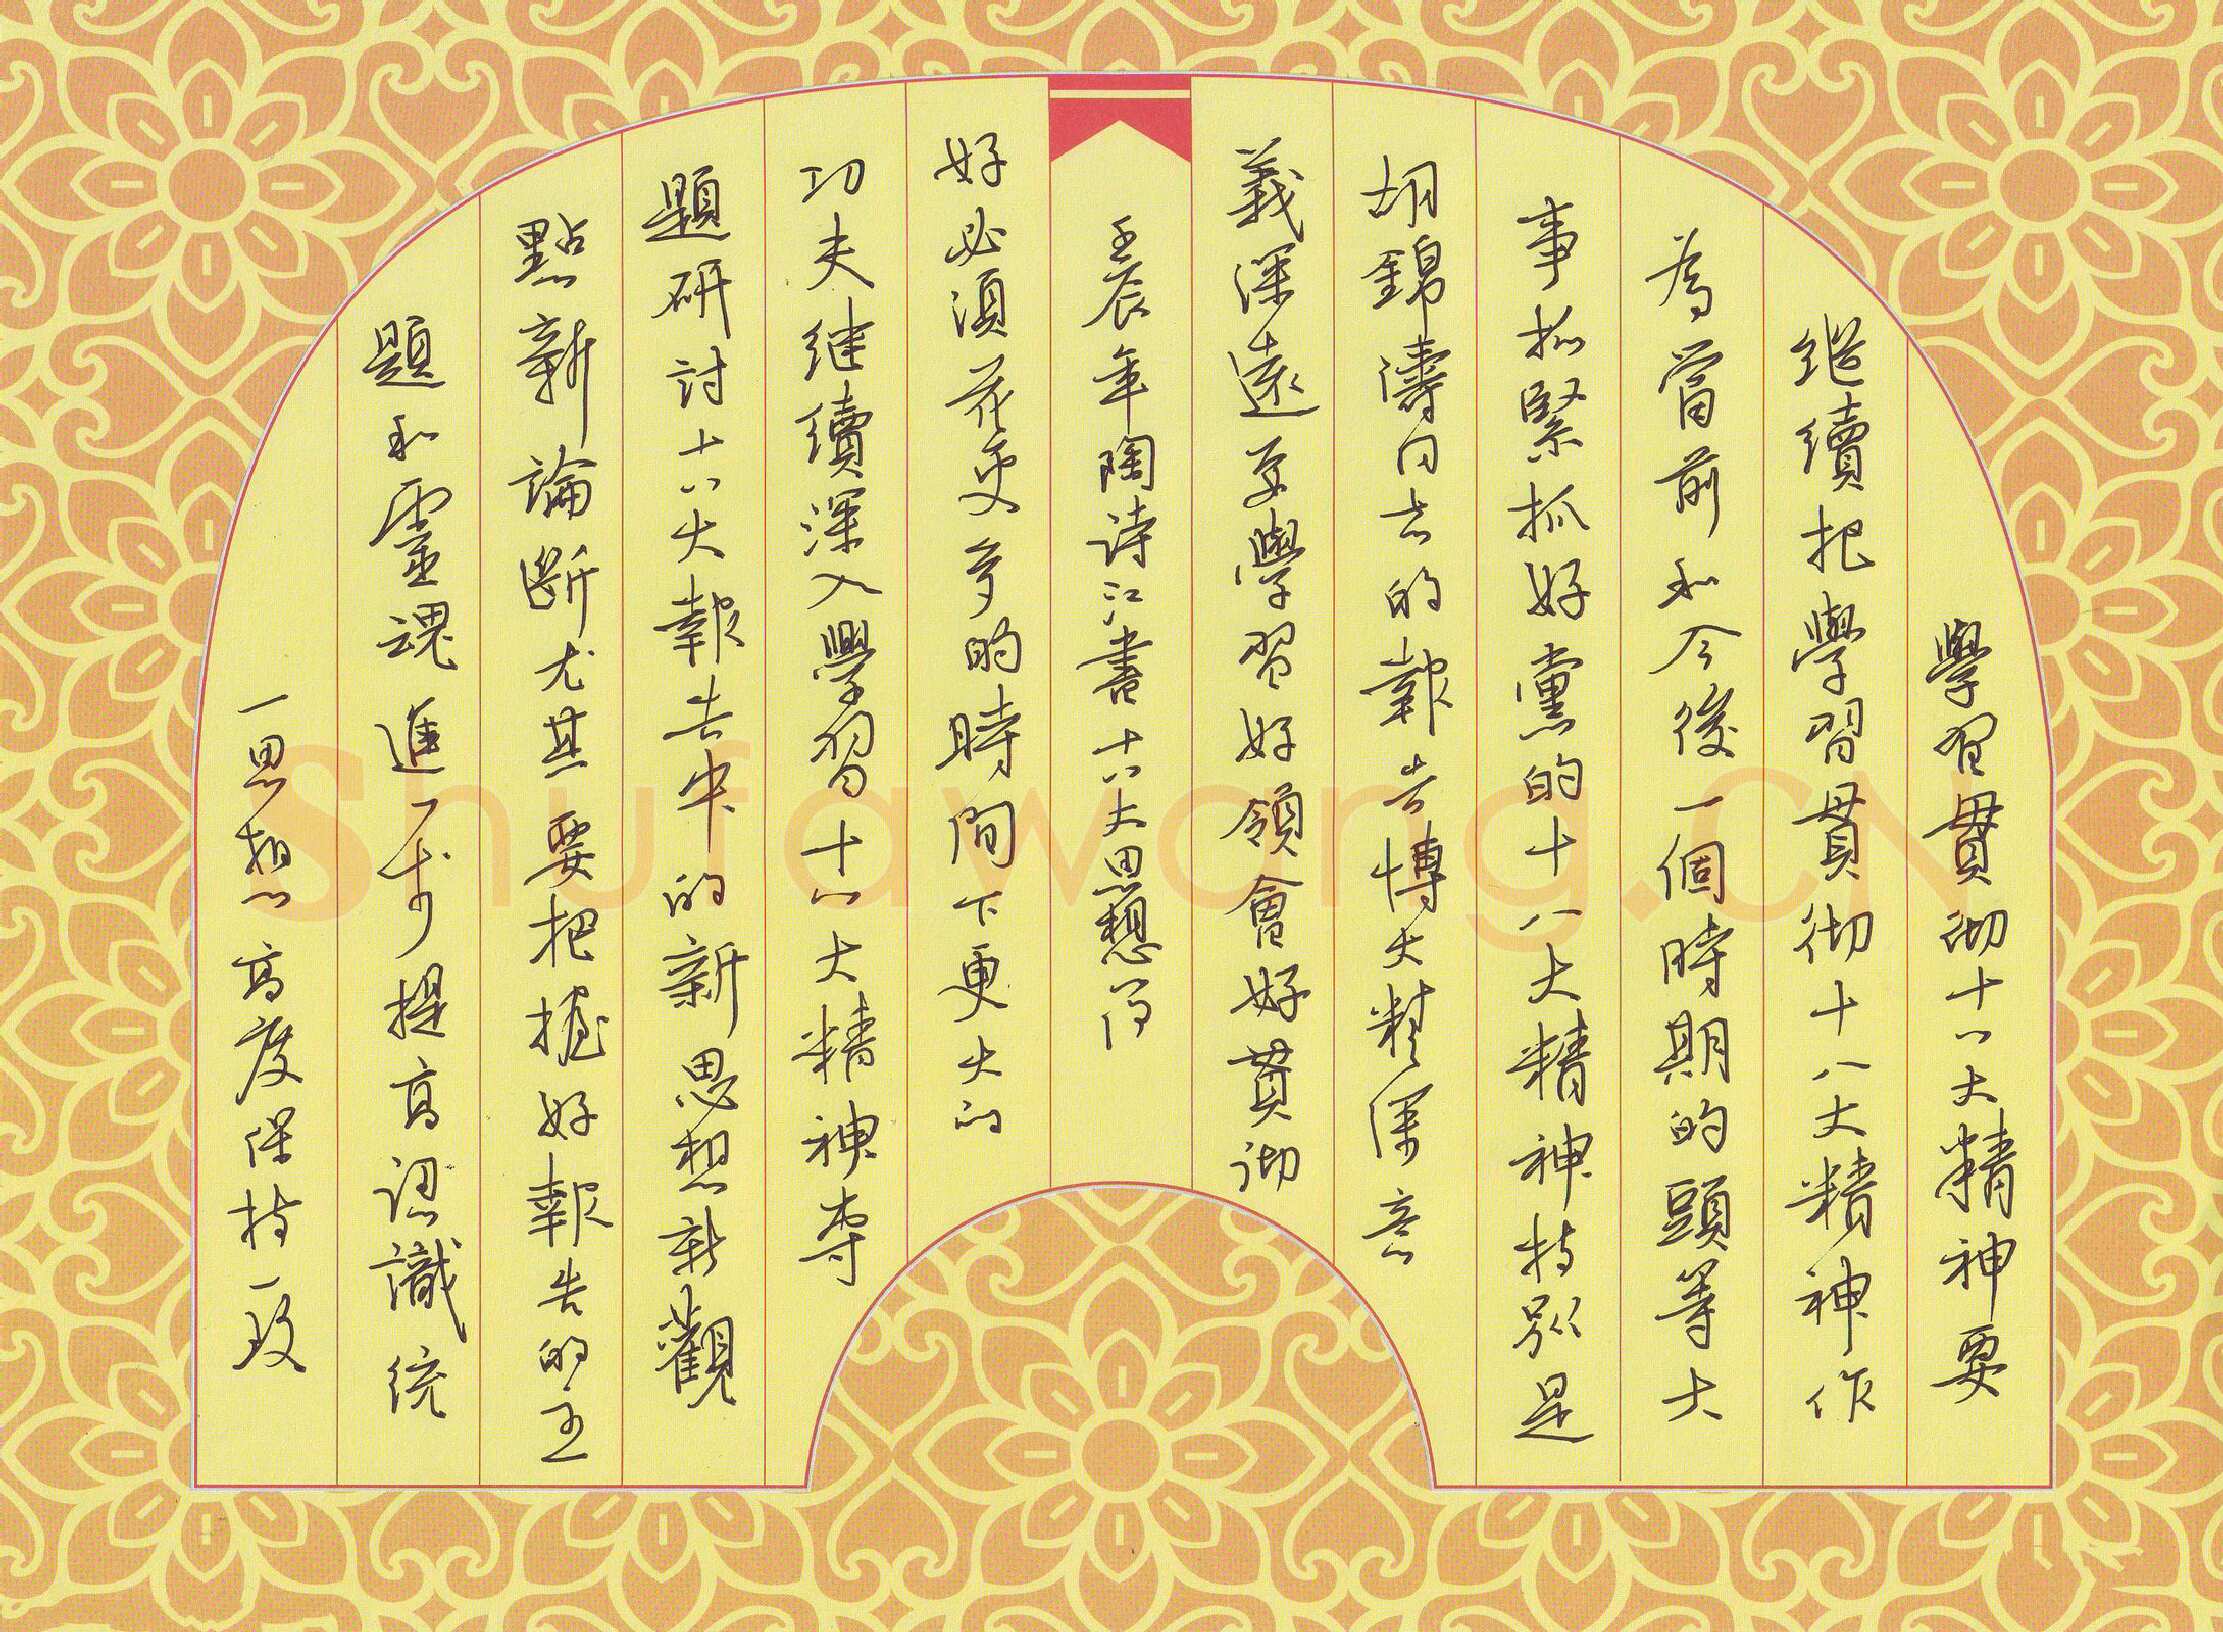 學習貫彻十八大精神要
繼續把學習貫彻十八大精神作
為當前和今後一個時期的頭等大
事抓緊抓好黨的十八大精神特別是
胡錦濤同志的報告博大精深意
義深遠要學習好領會好貫彻
壬辰年陶诗江書十八大思想
好必須花更多的時間下更大的
功夫继續深入學習十八大精神專
題研討十八大報告中的新思想新觀
點新論斷尤其要把握好報告的主
題和靈魂進一步提高認識统
一思想高度保持一致
shufawang.CN